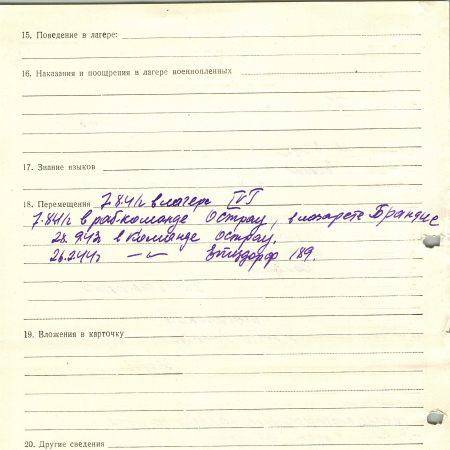 15. Поведение в лагере:
16. Наказания и поощрения в лагере военнопленных
17. Знание языков
18. Перемещения 7.8.41г в лагерь IVГ
7.8.41г в раб. команде Острау, в лазарете Брандис
28.9.43г в команде Острау.
26.2.44г —〃— 189.
19. Вложения в карточку
20. Другие сведения